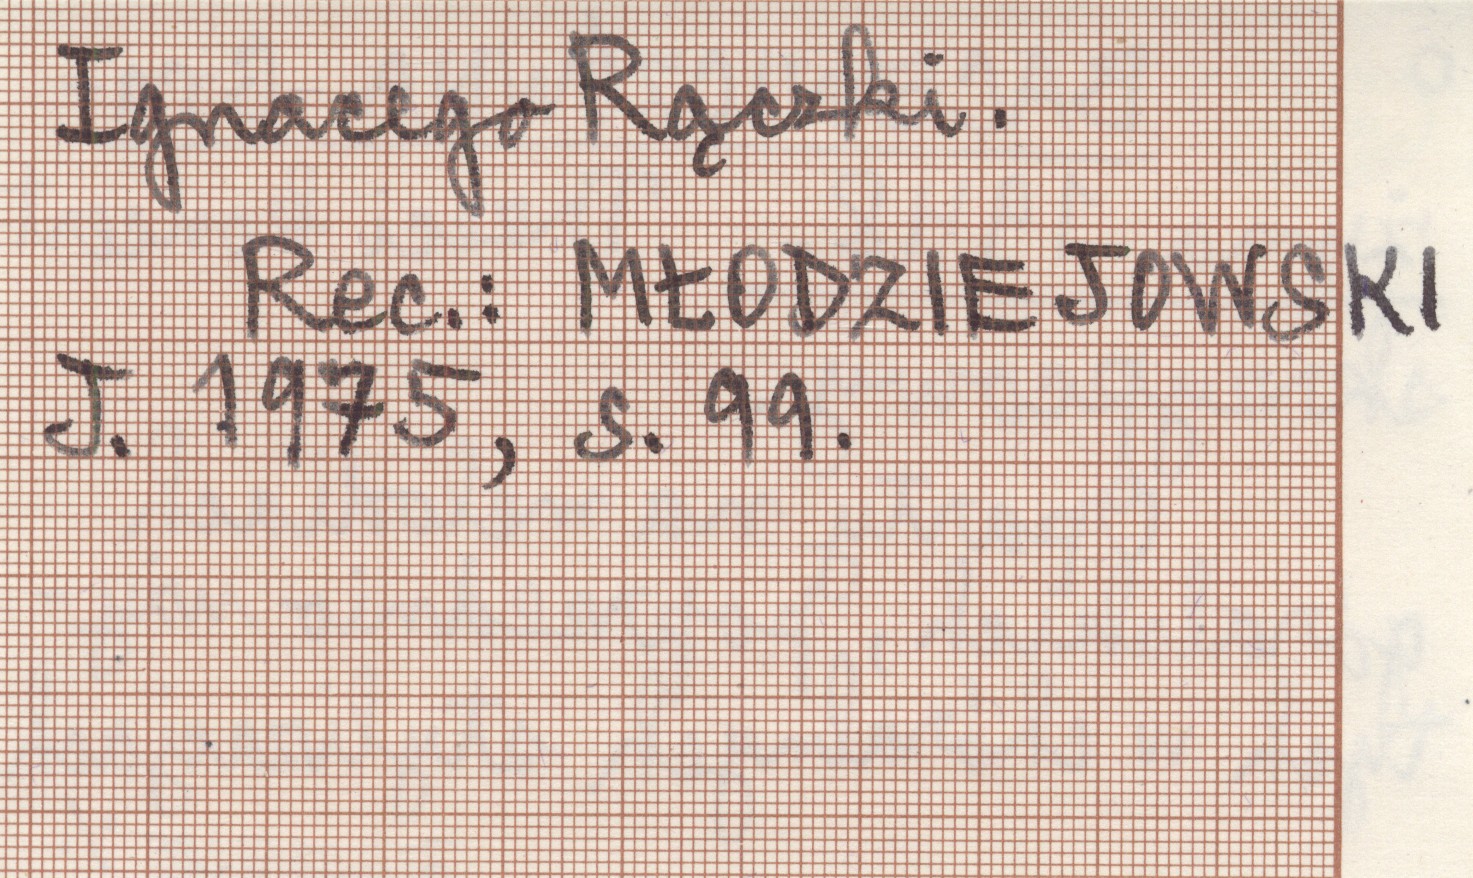 Ignacego Rączki.
Rec.: MŁODZIEJOWSKI
J. 1975, s. 99.